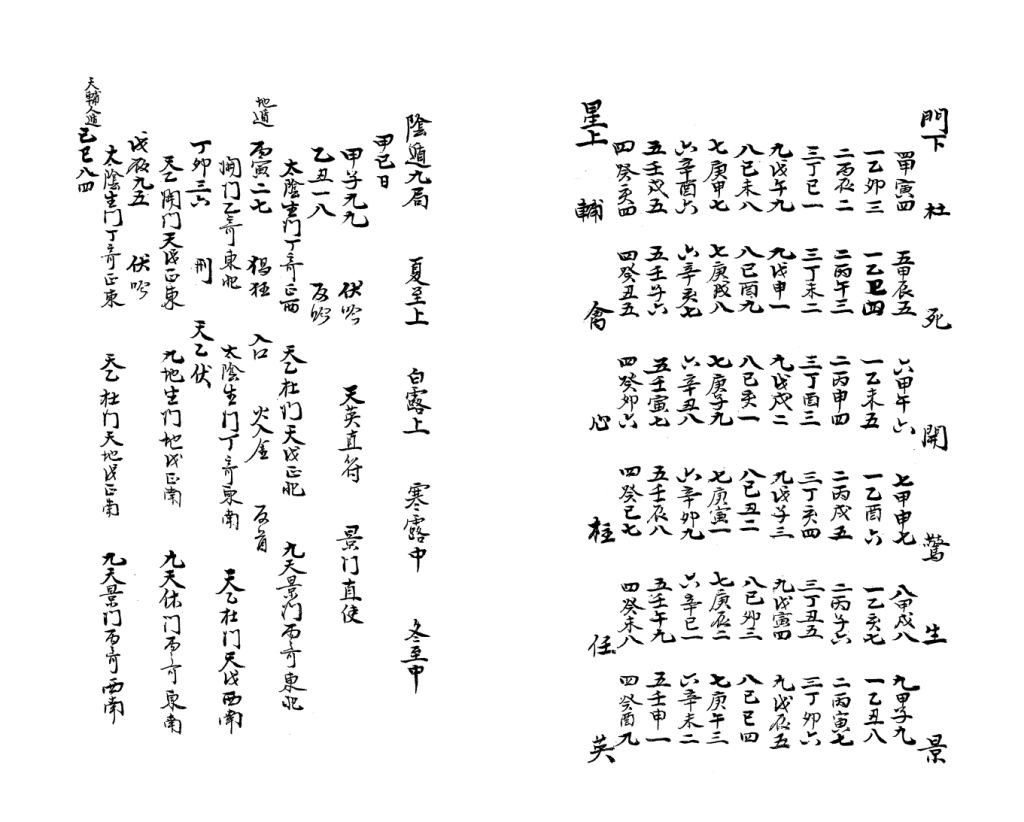 門下 杜 死 開 驚 生 景
四甲寅四 五甲辰五 六甲午六 七甲申七 八甲戌八 九甲子九
一乙卯三 一乙卫四 一乙未五 一乙酉六 一乙亥七 一乙丑八
二丙辰二 二丙午三 二丙申四 二丙戌五 二丙子六 二丙寅七
三丁巳一 三丁未二 三丁酉三 三丁亥四 三丁丑五 三丁卯六
九戊午九 九戊申一 九戊戌二 九戊子三 九戊寅四 九戊辰五
八己未八 八己酉九 八己亥一 八己丑二 八己卯三 八己巳四
七庚申七 七庚戌八 七庚子九 七庚寅一 七庚辰二 七庚午三
六辛酉六 六辛亥七 六辛丑八 六辛卯九 六辛巳一 六辛未二
五壬戌五 五壬子六 五壬寅七 五壬辰八 五壬午九 五壬申一
四癸亥四 四癸丑五 四癸卯六 四癸巳七 四癸未八 四癸酉九
星上 輔 禽 心 柱 任 英
陰遁九局 夏至上 白露上 寒露中 冬至中
甲己日
甲子九九 伏吟 天英直符 景门直使
乙丑一八 反吟
太陰生门丁奇正西 天乙杜门天戊正北 九天景门丙奇東北
地遁 丙寅二七 猖狂 入口 火入金 反首
開门乙奇東北 太陰生门丁奇東南 天乙杜门天戊西南
丁卯三六 刑 天乙伏
天乙開门天戊正東 九地生门地戊正南 九天休门丙奇東南
戊辰九五 伏吟
太陰生门丁奇正東 天乙杜门天地戊正南 九天景门丙奇西南
天輔人遁 己巳八四